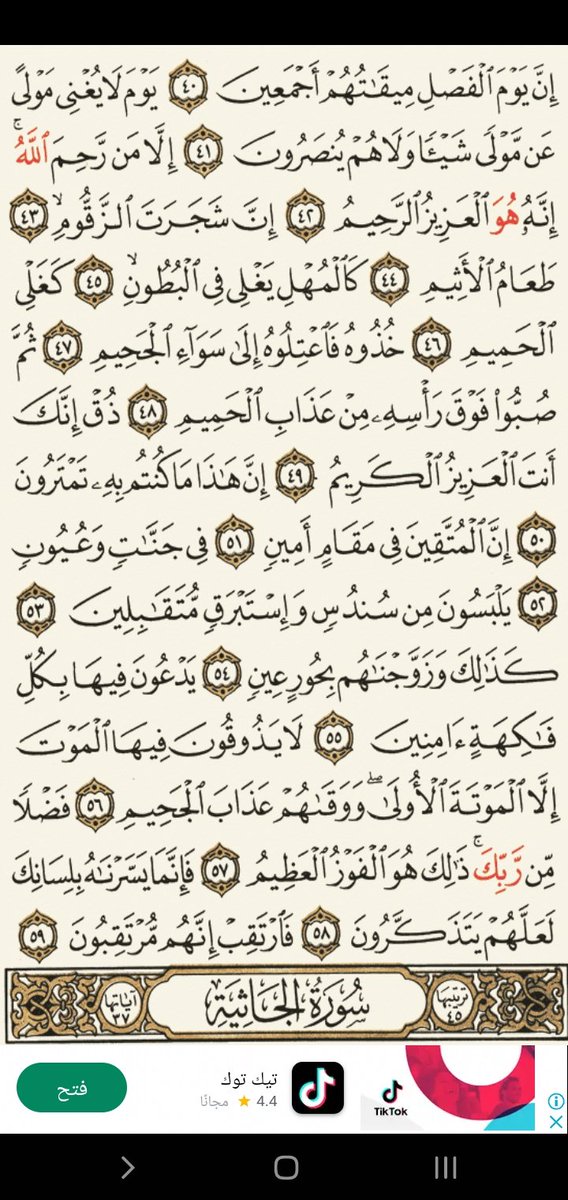 إِنَّ يَوْمَ ٱلْفَصْلِ مِيقَٰتُهُمْ أَجْمَعِينَ ٤٠ يَوْمَ لَا يُغْنِى مَوْلًى
عَن مَّوْلًى شَيْـًٔا وَلَا هُمْ يُنصَرُونَ ٤١ إِلَّا مَن رَّحِمَ ٱللَّهُ ۚ
إِنَّهُۥ هُوَ ٱلْعَزِيزُ ٱلرَّحِيمُ ٤٢ إِنَّ شَجَرَتَ ٱلزَّقُّومِ ۙ ٤٣
طَعَامُ ٱلْأَثِيمِ ٤٤ كَٱلْمُهْلِ يَغْلِى فِى ٱلْبُطُونِ ۙ ٤٥ كَغَلْىِ
ٱلْحَمِيمِ ٤٦ خُذُوهُ فَٱعْتِلُوهُ إِلَىٰ سَوَآءِ ٱلْجَحِيمِ ٤٧ ثُمَّ
صُبُّوا۟ فَوْقَ رَأْسِهِۦ مِنْ عَذَابِ ٱلْحَمِيمِ ٤٨ ذُقْ إِنَّكَ
أَنتَ ٱلْعَزِيزُ ٱلْكَرِيمُ ٤٩ إِنَّ هَٰذَا مَا كُنتُم بِهِۦ تَمْتَرُونَ
٥٠ إِنَّ ٱلْمُتَّقِينَ فِى مَقَامٍ أَمِينٍ ٥١ فِى جَنَّٰتٍ وَعُيُونٍ
٥٢ يَلْبَسُونَ مِن سُندُسٍ وَإِسْتَبْرَقٍ مُّتَقَٰبِلِينَ ٥٣
كَذَٰلِكَ وَزَوَّجْنَٰهُم بِحُورٍ عِينٍ ٥٤ يَدْعُونَ فِيهَا بِكُلِّ
فَٰكِهَةٍ ءَامِنِينَ ٥٥ لَا يَذُوقُونَ فِيهَا ٱلْمَوْتَ
إِلَّا ٱلْمَوْتَةَ ٱلْأُولَىٰ ۖ وَوَقَىٰهُمْ عَذَابَ ٱلْجَحِيمِ ٥٦ فَضْلًا
مِّن رَّبِّكَ ۚ ذَٰلِكَ هُوَ ٱلْفَوْزُ ٱلْعَظِيمُ ٥٧ فَإِنَّمَا يَسَّرْنَٰهُ بِلِسَانِكَ
لَعَلَّهُمْ يَتَذَكَّرُونَ ٥٨ فَٱرْتَقِبْ إِنَّهُم مُّرْتَقِبُونَ ٥٩
ترتيبها ٤٥ سُورَةُ الجَاثِيَةِ آياتها ٣٧
تيك توك
4.4 ★ مجانًا
فتح
TikTok